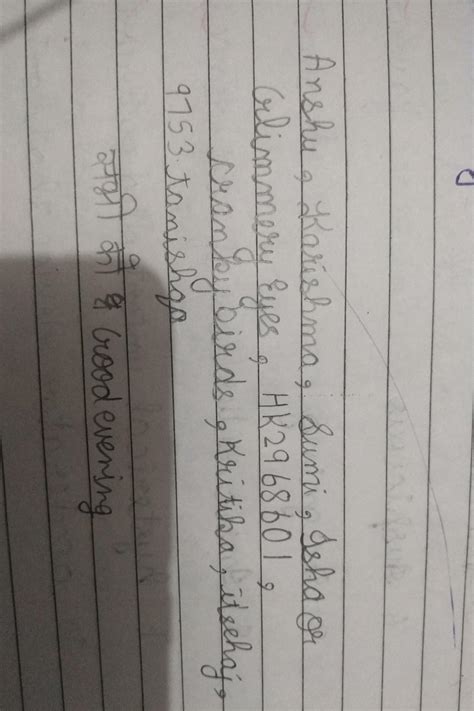 Anshu, Karishma, Sumi, Isha or
Glimmery Eyes, HK2968601,
cranky birds, Kritika, itsehaj,
9753.tanishqa
सभी को Good evening